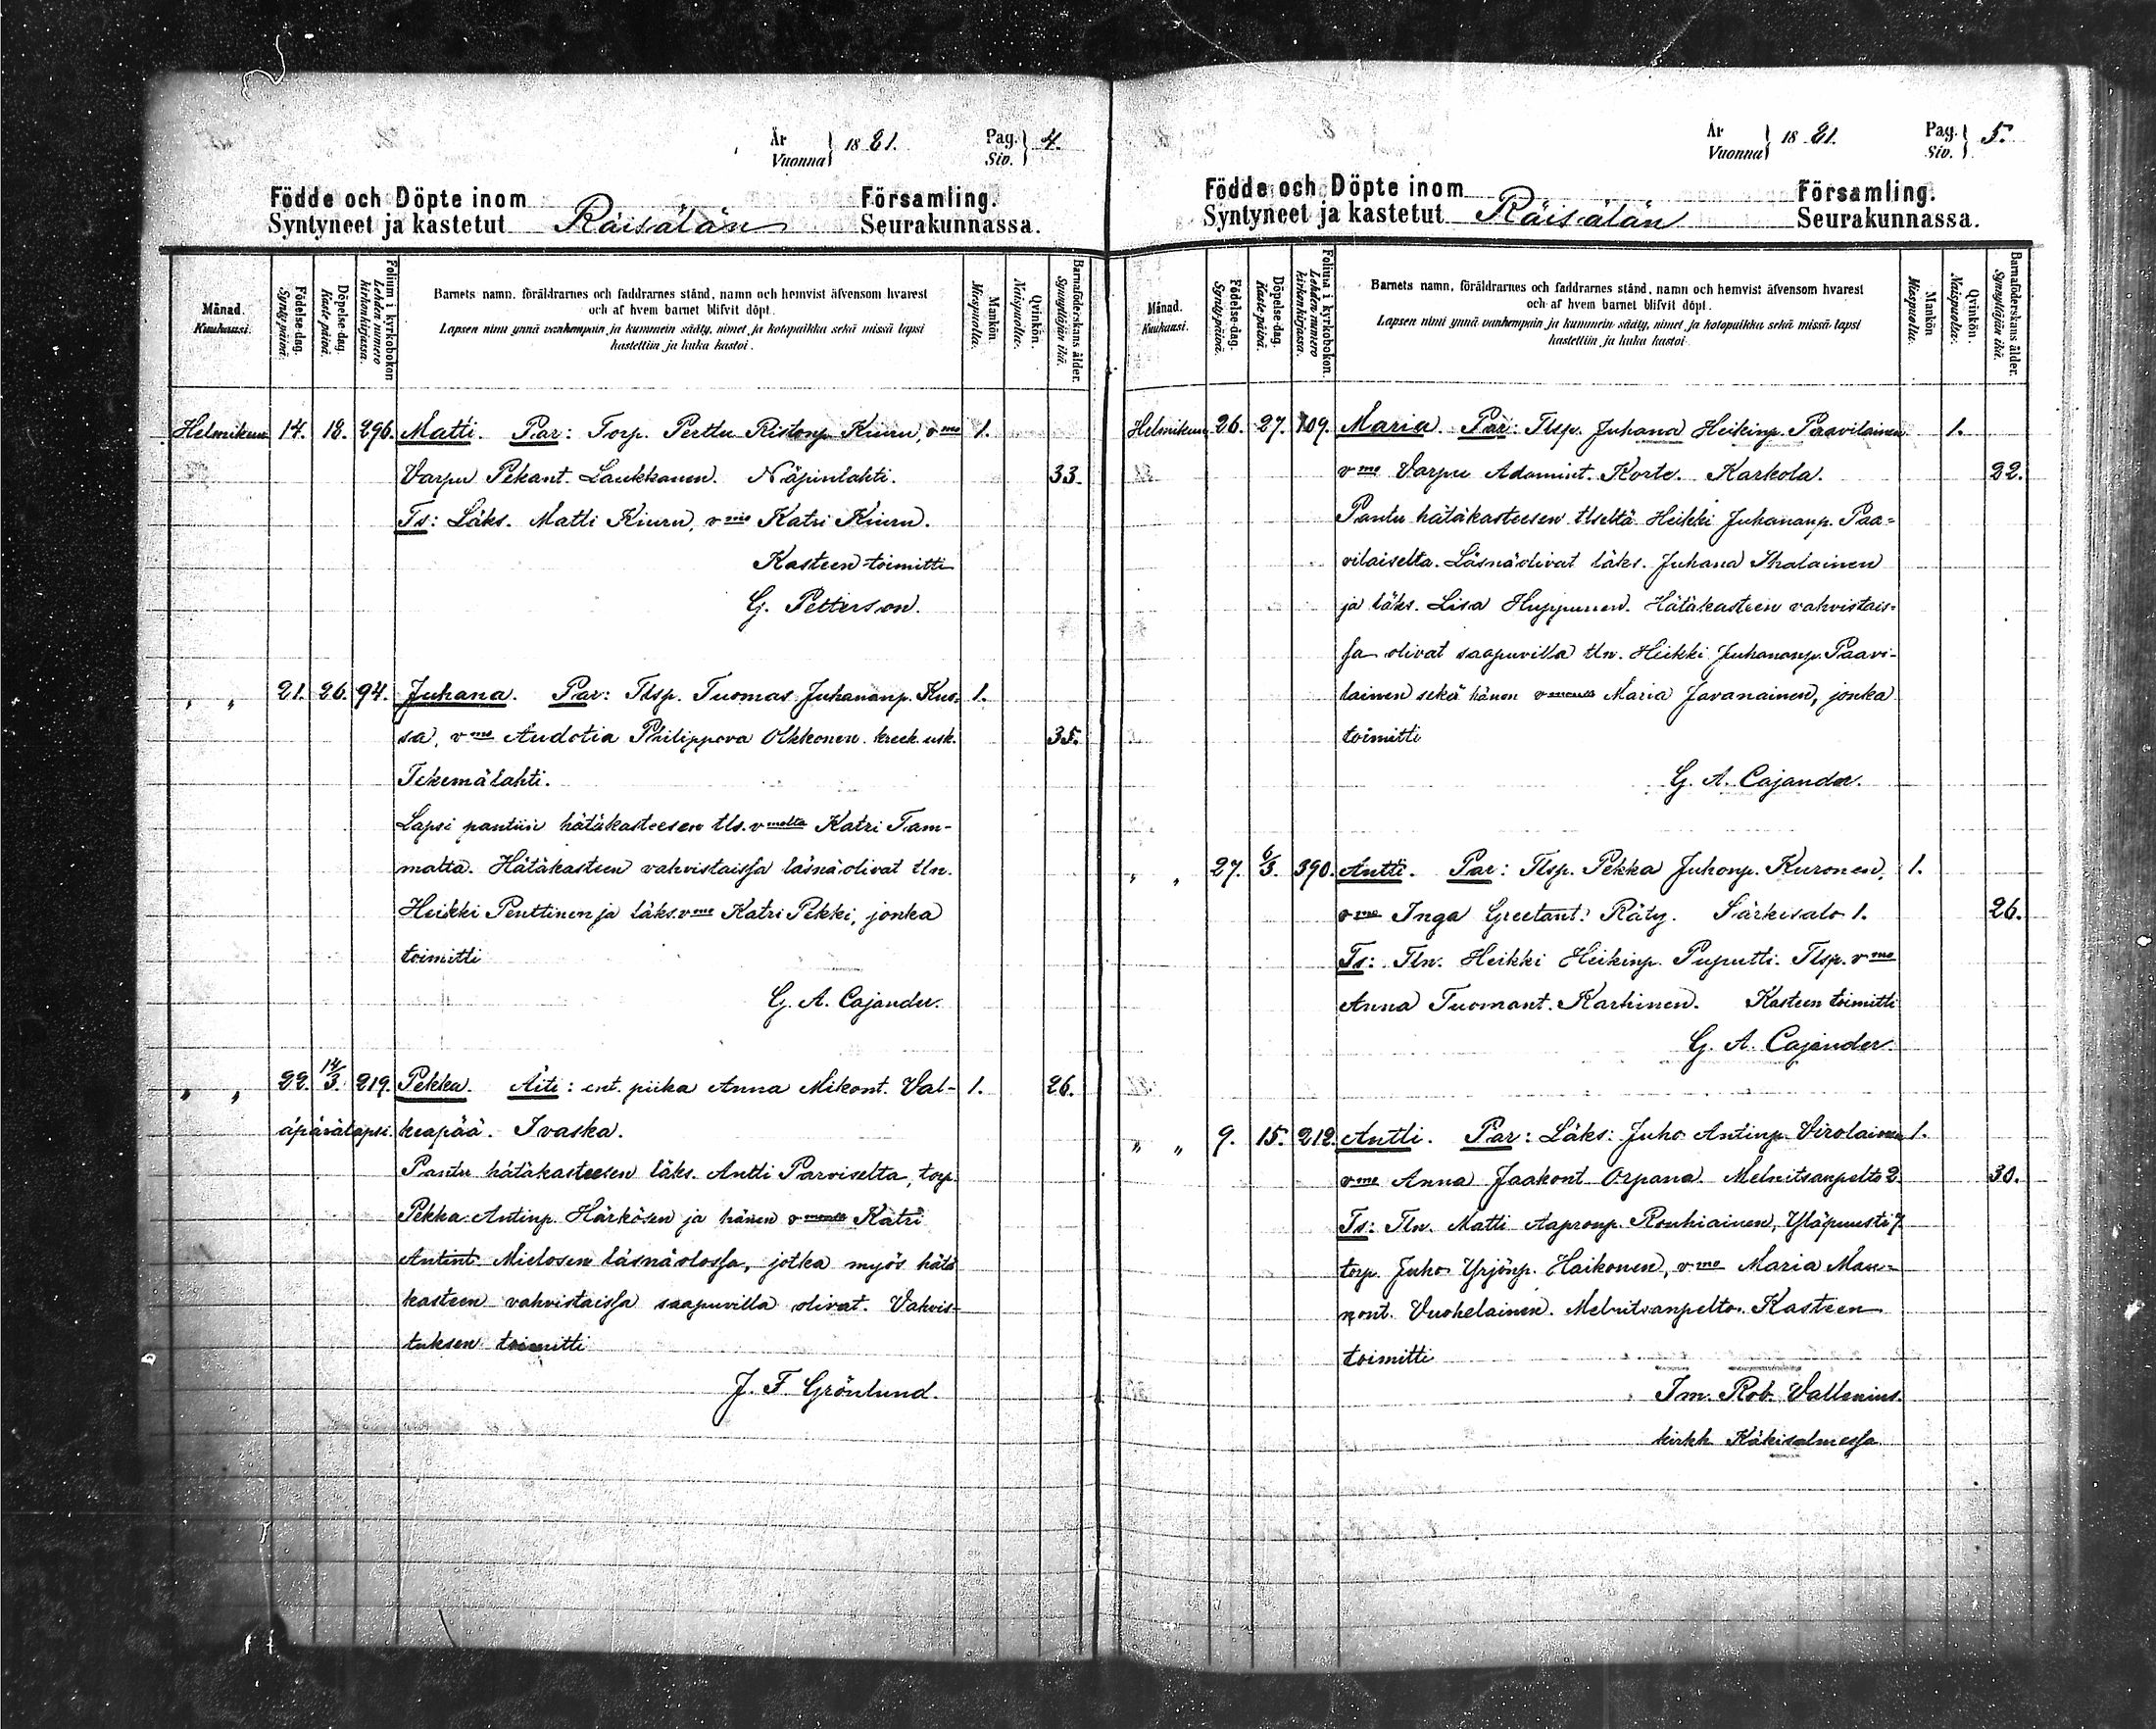 År
Vuonna } 1881. Pag.
Siv. } 4.
Födde och Döpte inom Församling.
Syntyneet ja kastetut Räisälän Seurakunnassa.
Månad.
Kuukausi.
Födelse-dag.
Synty-päivä.
Döpelse-dag.
Kaste-päivä.
Folium i kyrkobokon
Lehden numero
kirkonkirjassa.
Barnets namn, föräldrarnes och faddrarnes stånd, namn och hemvist äfvensom hvarest
och af hvem barnet blifvit döpt.
Lapsen nimi ynnä vanhempain ja kummein sääty, nimet ja kotopaikka sekä missä lapsi
kastettiin ja kuka kastoi.
Mankön.
Miespuolta.
Qvinkön.
Naispuolta.
Barnaföderskans ålder.
Synnyttäjän ikä.
Helmikuu 14. 18. 296. Matti. Par: Torp. Perttu Ristonp. Kiuru, vmo 1.
Varpu Pekant. Laukkanen. Näpinlahti. 33.
Ts: Läks. Matti Kiuru, vmo Katri Kiuru.
Kasteen toimitti
G. Petterson.
" " 21. 26. 94. Juhana. Par: Tlsp. Tuomas Juhananp. Kuo- 1.
sa, vmo Audotia Philippova Olkkonen. kreek. usk. 35.
Tekemälahti.
Lapsi pantiin hätäkasteesen tls. vmolta Katri Tam-
malta. Hätäkasteen vahvistaissa läsnäolivat tln.
Heikki Penttinen ja läks. vmo Katri Pekki, jonka
toimitti
G. A. Cajander.
" " 22. 14/3. 219. Pekka. Äiti: ent. piika Anna Mikont. Val- 1. 26.
äpärälapsi. keapää. Ivaska.
Pantu hätäkasteesen läks. Antti Parviselta, torp.
Pekka Antinp. Härkösen ja hänen vmonsa Katri
Antint. Mielosen läsnäolossa, jotka myös hätä
kasteen vahvistaissa saapuvilla olivat. Vahvis-
tuksen toimitti
J. F. Grönlund.
År
Vuonna } 1881. Pag.
Siv. } 5.
Födde och Döpte inom Församling.
Syntyneet ja kastetut Räisälän Seurakunnassa.
Månad.
Kuukausi.
Födelse-dag.
Synty-päivä.
Döpelse-dag.
Kaste-päivä.
Folium i kyrkobokon.
Lehden numero
kirkonkirjassa.
Barnets namn, föräldrarnes och faddrarnes stånd, namn och hemvist äfvensom hvarest
och af hvem barnet blifvit döpt.
Lapsen nimi ynnä vanhempain ja kummein sääty, nimet ja kotopaikka sekä missä lapsi
kastettiin ja kuka kastoi.
Mankön
Miespuolta.
Qvinkön.
Naispuolta.
Barnaföderskans ålder.
Synnyttäjän ikä.
Helmikuu 26. 27. 109. Maria. Par: Tlsp. Juhana Heikinp. Paavilainen 1.
vmo Varpu Adamint. Korte. Karkola. 22.
Pantu hätäkasteesen tlseltä Heikki Juhananp. Paa-
vilaiselta. Läsnäolivat läks. Juhana Ihalainen
ja läks. Lisa Huppunen. Hätäkasteen vahvistais-
sa olivat saapuvilla tln. Heikki Juhananp. Paavi-
lainen sekä hänen vmonsa Maria Javanainen, jonka
toimitti
G. A. Cajander.
" " 27. 6/3. 390. Antti. Par: Tlsp. Pekka Juhonp. Kuronen, 1.
vmo Inga Greetant. Räty. Särkisalo 1. 26.
Ts: Tln. Heikki Heikinp. Puputti. Tlsp. vmo
Anna Tuomant. Karhinen. Kasteen toimitti
G. A. Cajander.
" " 9. 15. 212. Antti. Par: Läks: Juho Antinp. Virolainen 1.
vmo Anna Jaakont Orpana. Melnitsanpelto 2. 30.
Ts: Tln. Matti Aapronp. Rouhiainen, Yläpuusti 7
torp. Juho Yrjönp. Haikonen, vmo Maria Mau-
nont. Vuohelainen. Melnitsanpelto. Kasteen
toimitti
Im. Rob. Vallenius.
kirkh Käkisalmessa